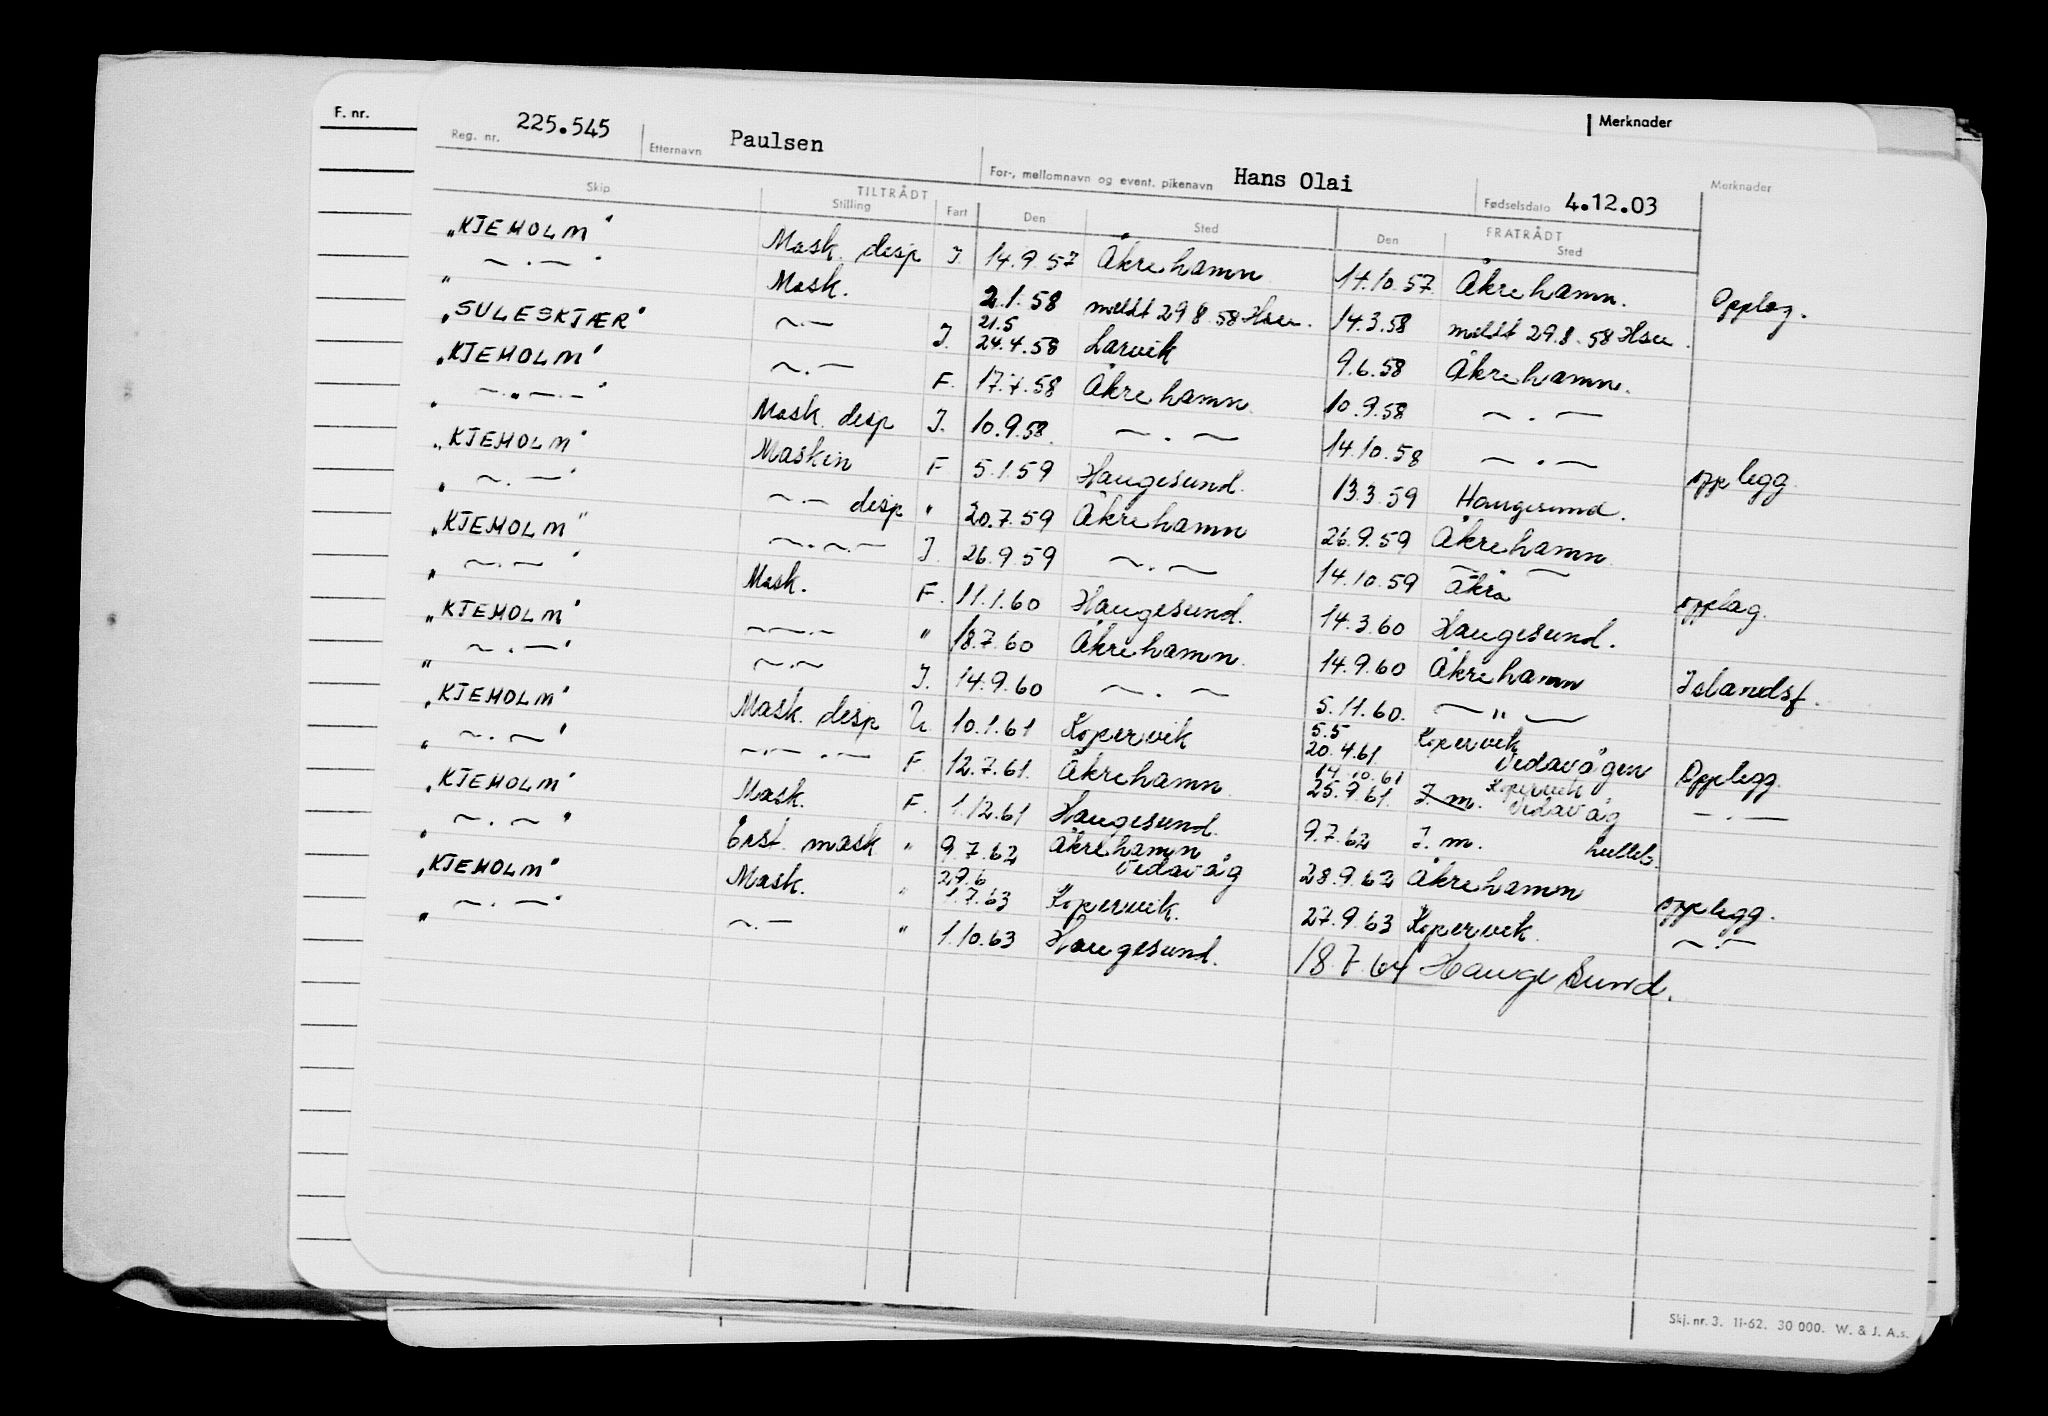 F. nr.
Merknader
Reg. nr. 225.545 Etternavn Paulsen For-, mellomnavn og event. pikenavn Hans Olai Fødselsdato 4.12.03 Merknader
TILTRÅDT FRATRÅDT
Skip Stilling Fart Den Sted Den Sted
"KJEHOLM" Mask. desp J. 14.9.57 Åkrehamn 14.10.57 Åkrehamn. Opplag.
" — . — " Mask. 2.1.58 meldt 29.8.58 Hsu. 14.3.58 meldt 29.8.58 Hsu.
"SULESKJÆR" — . — J. 21.5 24.4.58 Larvik 9.6.58 Åkrehamn.
"KJEHOLM" — . — F. 17.7.58 Åkrehamn 10.9.58 — . —
" — . — " Mask. desp J. 10.9.58. — . — 14.10.58 — . — opplegg.
"KJEHOLM" Maskin F 5.1.59 Haugesund. 13.3.59 Haugesund.
" — . — " — . — desp " 20.7.59 Åkrehamn 26.9.59 Åkrehamn
"KJEHOLM" — . — . — J. 26.9.59 — . — 14.10.59 Åkra opplag.
" — . — " Mask. F. 11.1.60 Haugesund. 14.3.60 Haugesund.
"KJEHOLM" — . — " 18.7.60 Åkrehamn. 14.9.60 Åkrehamn Islandsf.
" — . — " — . — J. 14.9.60 — . — 5.11.60. — " —
"KJEHOLM" Mask. desp U 10.1.61 Kopervik 5.5 20.4.61 Kopervik Vedavågen Opplegg.
" — . — " — . — . — F. 12.7.61. Åkrehamn 14.10.61 25.9.61. J. m. Kopervik Vedavåg — . —
"KJEHOLM" Mask. F. 1.12.61 Haugesund. 9.7.62 J. m.
" — . — " Erst. mask " 9.7.62 Åkrehamn Vedavåg 28.9.62 Åkrehamn opplegg.
"KJEHOLM" Mask. " 29.6 1.7.63 Kopervik. 27.9.63 Kopervik. — . —
" — . — " — . — " 1.10.63 Haugesund. 18.7.64 Hauge Sund.
Skj. nr. 3. 11-62. 30 000. W. & J. A.s.